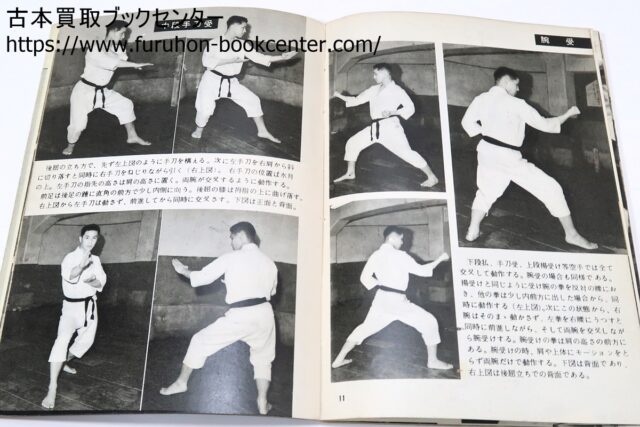 古本買取ブックセンター
https://www.furuhon-bookcenter.com/
中段手刀受
後屈の立ち方で、先ず左上図のように手刀を構える。次に左手刀を右肩から斜
に切り落すと同時に右手刀をねじりながら引く(右上図)。右手刀の位置は水月
の上。左手刀の指先の高さは肩の高さに置く。両腕が交叉するように動作する。
前足は後足の踵に直角の前方で少し内側に向う。後屈の膝は拇指の上に曲げ落す。
右上図から左手刀は動さず、前進してから同時に交叉さす。下図は正面と背面。
腕受
下段払、手刀受、上段揚受け等空手では全て
交叉して動作する。腕受の場合も同様である。
揚受けと同じように受け腕の拳を反対の腰にお
き、他の拳は少し内前方に出した場合から、同
時に動作する(左上図)。次にこの状態から、右
腕はそのまゝ動かさず、左拳を右腰にうつすと
同時に前進しながら、そして両腕を交叉しなが
ら腕受けする。腕受けの拳は肩の高さの前方に
ある。腕受けの時、肩や上体にモーションをと
らず両腕だけで動作する。下図は背面であり、
右上図は後屈立ちでの背面である。
11